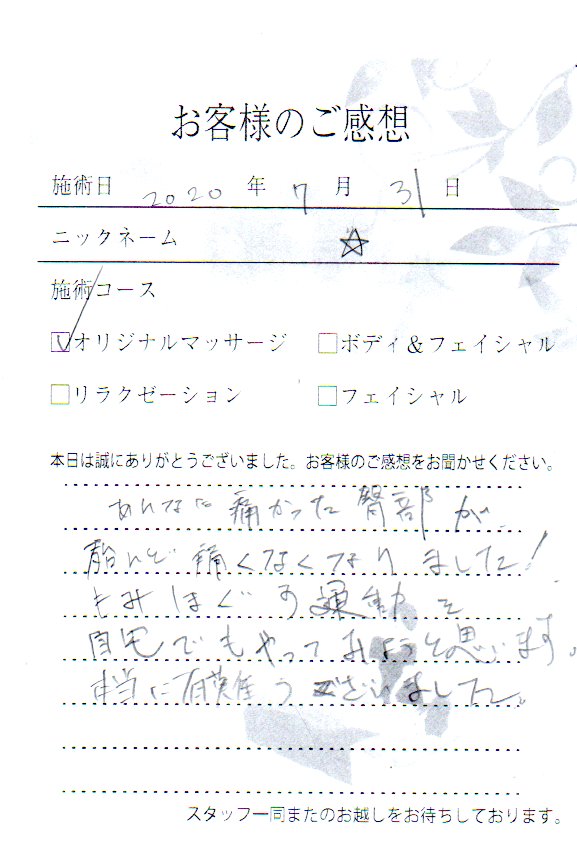 お客様のご感想
施術日 2020 年 7 月 31 日
ニックネーム ☆
施術コース
☑オリジナルマッサージ □ボディ＆フェイシャル
□リラクゼーション □フェイシャル
本日は誠にありがとうございました。お客様のご感想をお聞かせください。
あんなに痛かった臀部が
殆んど痛くなくなりました!
もみほぐす運動を
自宅でもやってみようと思います。
本当に有難うございました。
スタッフ一同またのお越しをお待ちしております。